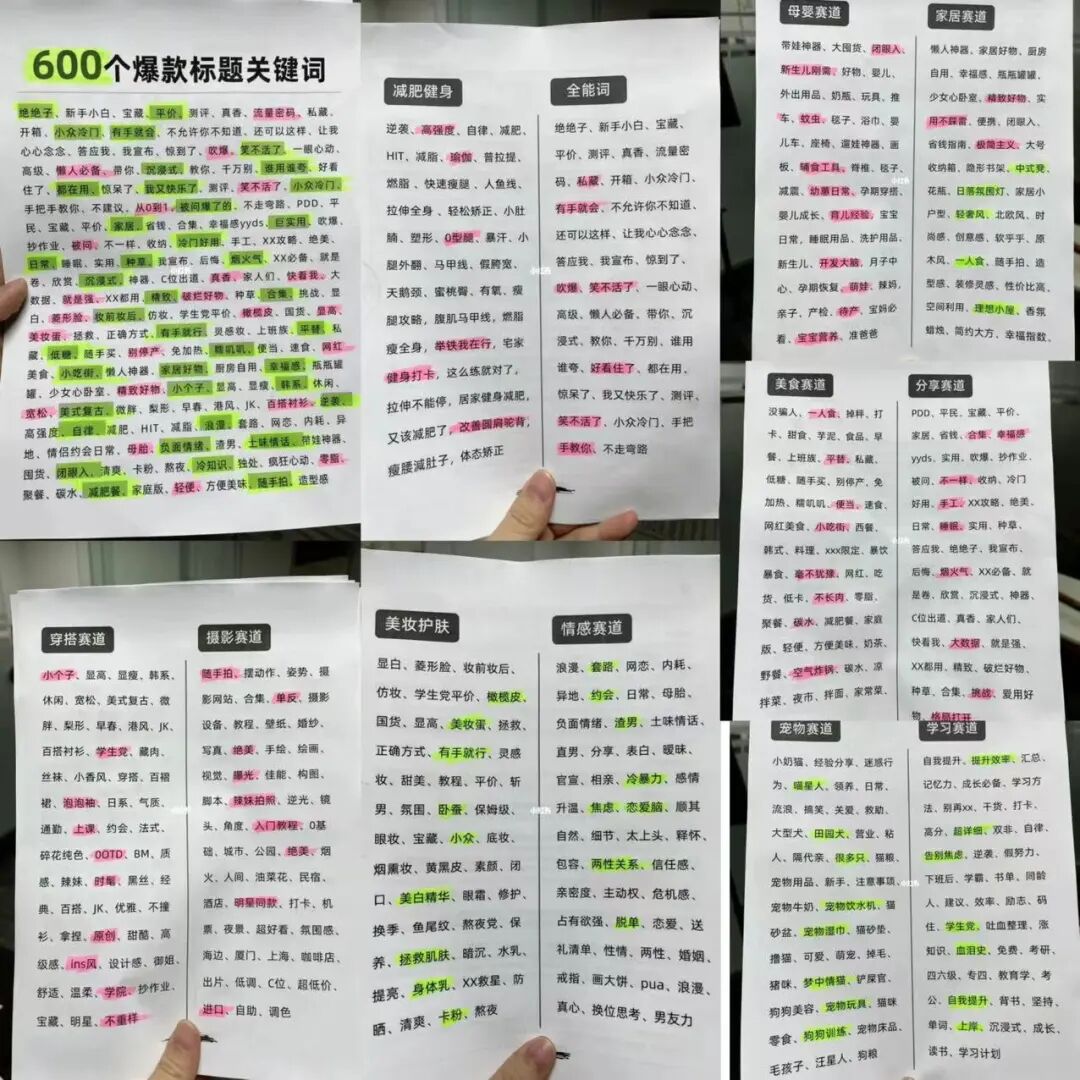 600个爆款标题关键词
绝绝子、新手小白、宝藏、平价、测评、真香、流量密码、私藏、
开箱、小众冷门、有手就会、不允许你不知道、还可以这样、让我
心心念念、答应我、我宣布、惊到了、吹爆、笑不活了、一眼心动、
高级、懒人必备、带你、沉浸式、教你、千万别、谁用谁夸、好看
住了、都在用、惊呆了、我又快乐了、测评、笑不活了、小众冷门、
手把手教你、不建议、从0到1、被问爆了的、不走弯路、PDD、平
民、宝藏、平价、家居、省钱、合集、幸福感yyds、巨实用、吹爆、
抄作业、被问、不一样、收纳、冷门好用、手工、XX攻略、绝美、
日常、睡眠、实用、种草、我宣布、后悔、烟火气、XX必备、就是
卷、欣赏、沉浸式、神器、C位出道、真香、家人们、快看我、大
数据、就是强、XX都用、精致、破烂好物、种草、合集、挑战、显
白、菱形脸、妆前妆后、仿妆、学生党平价、橄榄皮、国货、显高、
美妆蛋、拯救、正确方式、有手就行、灵感妆、上班族、平替、私
藏、低糖、随手买、别停产、免加热、糯叽叽、便当、速食、网红
美食、小吃街、懒人神器、家居好物、厨房自用、幸福感、瓶瓶罐
罐、少女心卧室、精致好物、小个子、显高、显瘦、韩系、休闲、
宽松、美式复古、微胖、梨形、早春、港风、JK、百搭衬衫、逆袭、
高强度、自律、减肥、HIT、减脂、浪漫、套路、网恋、内耗、异
地、情侣约会日常、母胎、负面情绪、渣男、土味情话、带娃神器、
囤货、闭眼入、清爽、卡粉、熬夜、冷知识、独处、疯狂心动、零脂、
聚餐、碳水、减肥餐、家庭版、轻便、方便美味、随手拍、造型感
减肥健身
逆袭、高强度、自律、减肥、
HIT、减脂、瑜伽、普拉提、
燃脂 、快速瘦腿、人鱼线、
拉伸全身 、轻松矫正、小肚
腩、塑形、O型腿、暴汗、小
腿外翻、马甲线、假胯宽、
天鹅颈、蜜桃臀、有氧、瘦
腿攻略，腹肌马甲线，燃脂
瘦全身，举铁我在行，宅家
健身打卡，这么练就对了，
拉伸不能停，居家健身减肥，
又该减肥了，改善圆肩驼背，
瘦腰减肚子，体态矫正
全能词
绝绝子、新手小白、宝藏、
平价、测评、真香、流量密
码、私藏、开箱、小众冷门、
有手就会、不允许你不知道、
还可以这样、让我心心念念、
答应我、我宣布、惊到了、
吹爆、笑不活了、一眼心动、
高级、懒人必备、带你、沉
浸式、教你、千万别、谁用
谁夸、好看住了、都在用、
惊呆了、我又快乐了、测评、
笑不活了、小众冷门、手把
手教你、不走弯路
母婴赛道
带娃神器、大囤货、闭眼入、
新生儿刚需、好物、婴儿、
外出用品、奶瓶、玩具、推
车、蚊虫、毯子、浴巾、婴
儿车、座椅、遛娃神器、画
板、辅食工具、脊椎、毯子、
减震、幼崽日常、孕期穿搭、
婴儿成长、育儿经验、宝宝
日常、睡眠用品、洗护用品、
新生儿、开发大脑、月子中
心、孕期恢复、萌娃、辣妈、
亲子、产检、待产、宝妈必
看、宝宝营养、准爸爸
家居赛道
懒人神器、家居好物、厨房
自用、幸福感、瓶瓶罐罐、
少女心卧室、精致好物、实
用不踩雷、便携、闭眼入、
省钱指南、极简主义、大号
收纳箱、隐形书架、中式凳、
花瓶、日落氛围灯、家居小
户型、轻奢风、北欧风、时
尚感、创意感、软乎乎、原
木风、一人食、随手拍、造
型感、装修灵感、性价比高、
空间利用、理想小屋、香氛
蜡烛、简约大方、幸福指数、
美食赛道
没骗人、一人食、掉秤、打
卡、甜食、芋泥、食品、早
餐、上班族、平替、私藏、
低糖、随手买、别停产、免
加热、糯叽叽、便当、速食、
网红美食、小吃街、西餐、
韩式、料理、xxx限定、暴饮
暴食、毫不犹豫、网红、吃
货、低卡、不长肉、零脂、
聚餐、碳水、减肥餐、家庭
版、轻便、方便美味、奶茶、
野餐、空气炸锅、碳水、凉
拌菜、夜市、拌面、家常菜、
分享赛道
PDD、平民、宝藏、平价、
家居、省钱、合集、幸福感
yyds、实用、吹爆、抄作业、
被问、不一样、收纳、冷门
好用、手工、XX攻略、绝美、
日常、睡眠、实用、种草、
答应我、绝绝子、我宣布、
后悔、烟火气、XX必备、就
是卷、欣赏、沉浸式、神器、
C位出道、真香、家人们、
快看我、大数据、就是强、
XX都用、精致、破烂好物、
种草、合集、挑战、爱用好
物、格局打开
穿搭赛道
小个子、显高、显瘦、韩系、
休闲、宽松、美式复古、微
胖、梨形、早春、港风、JK、
百搭衬衫、学生党、藏肉、
丝袜、小香风、穿搭、百褶
裙、泡泡袖、日系、气质、
通勤、上课、约会、法式、
碎花纯色、OOTD、BM、质
感、辣妹、时髦、黑丝、经
典、百搭、JK、优雅、不撞
衫、拿捏、原创、甜酷、高
级感、ins风、设计感、御姐、
舒适、温柔、学院、抄作业、
宝藏、明星、不重样
摄影赛道
随手拍、摆动作、姿势、摄
影网站、合集、单反、摄影
设备、教程、壁纸、婚纱、
写真、绝美、手绘、绘画、
视觉、曝光、佳能、构图、
脚本、辣妹拍照、逆光、镜
头、角度、入门教程、0基
础、城市、公园、绝美、烟
火、人间、油菜花、民宿、
酒店、明星同款、打卡、机
票、夜景、超好看、氛围感、
海边、厦门、上海、咖啡店、
出片、低调、C位、超低价、
进口、自助、调色
美妆护肤
显白、菱形脸、妆前妆后、
仿妆、学生党平价、橄榄皮、
国货、显高、美妆蛋、拯救、
正确方式、有手就行、灵感
妆、甜美、教程、平价、斩
男、氛围、卧蚕、保姆级、
眼妆、宝藏、小众、底妆、
烟熏妆、黄黑皮、素颜、闭
口、美白精华、眼霜、修护、
换季、鱼尾纹、熬夜党、保
养、拯救肌肤、暗沉、水乳、
提亮、身体乳、XX救星、防
晒、清爽、卡粉、熬夜
情感赛道
浪漫、套路、网恋、内耗、
异地、约会、日常、母胎、
负面情绪、渣男、土味情话、
直男、分享、表白、暧昧、
官宣、相亲、冷暴力、感情
升温、焦虑、恋爱脑、顺其
自然、细节、太上头、释怀、
包容、两性关系、信任感、
亲密度、主动权、危机感、
占有欲强、脱单、恋爱、送
礼清单、性情、两性、婚姻、
戒指、画大饼、pua、浪漫、
真心、换位思考、男友力
宠物赛道
小奶猫、经验分享、迷惑行
为、喵星人、领养、日常、
流浪、搞笑、关爱、救助、
大型犬、田园犬、营业、粘
人、隔代亲、很多只、猫粮、
宠物用品、新手、注意事项、
宠物牛奶、宠物饮水机、猫
砂盆、宠物湿巾、猫砂垫、
撸猫、可爱、萌宠、掉毛、
猪咪、梦中情猫、铲屎官、
狗狗美容、宠物玩具、猫咪
零食、狗狗训练、宠物床品、
毛孩子、汪星人、狗粮
学习赛道
自我提升、提升效率、汇总、
记忆力、成长必备、学习方
法、别再xx、干货、打卡、
高分、超详细、双非、自律、
告别焦虑、逆袭、假努力、
下班后、学霸、书单、同龄
人、建议、效率、励志、码
住、学生党、吐血整理、涨
知识、血泪史、免费、考研、
四六级、专四、教育学、考
公、自我提升、背书、坚持、
单词、上岸、沉浸式、成长、
读书、学习计划